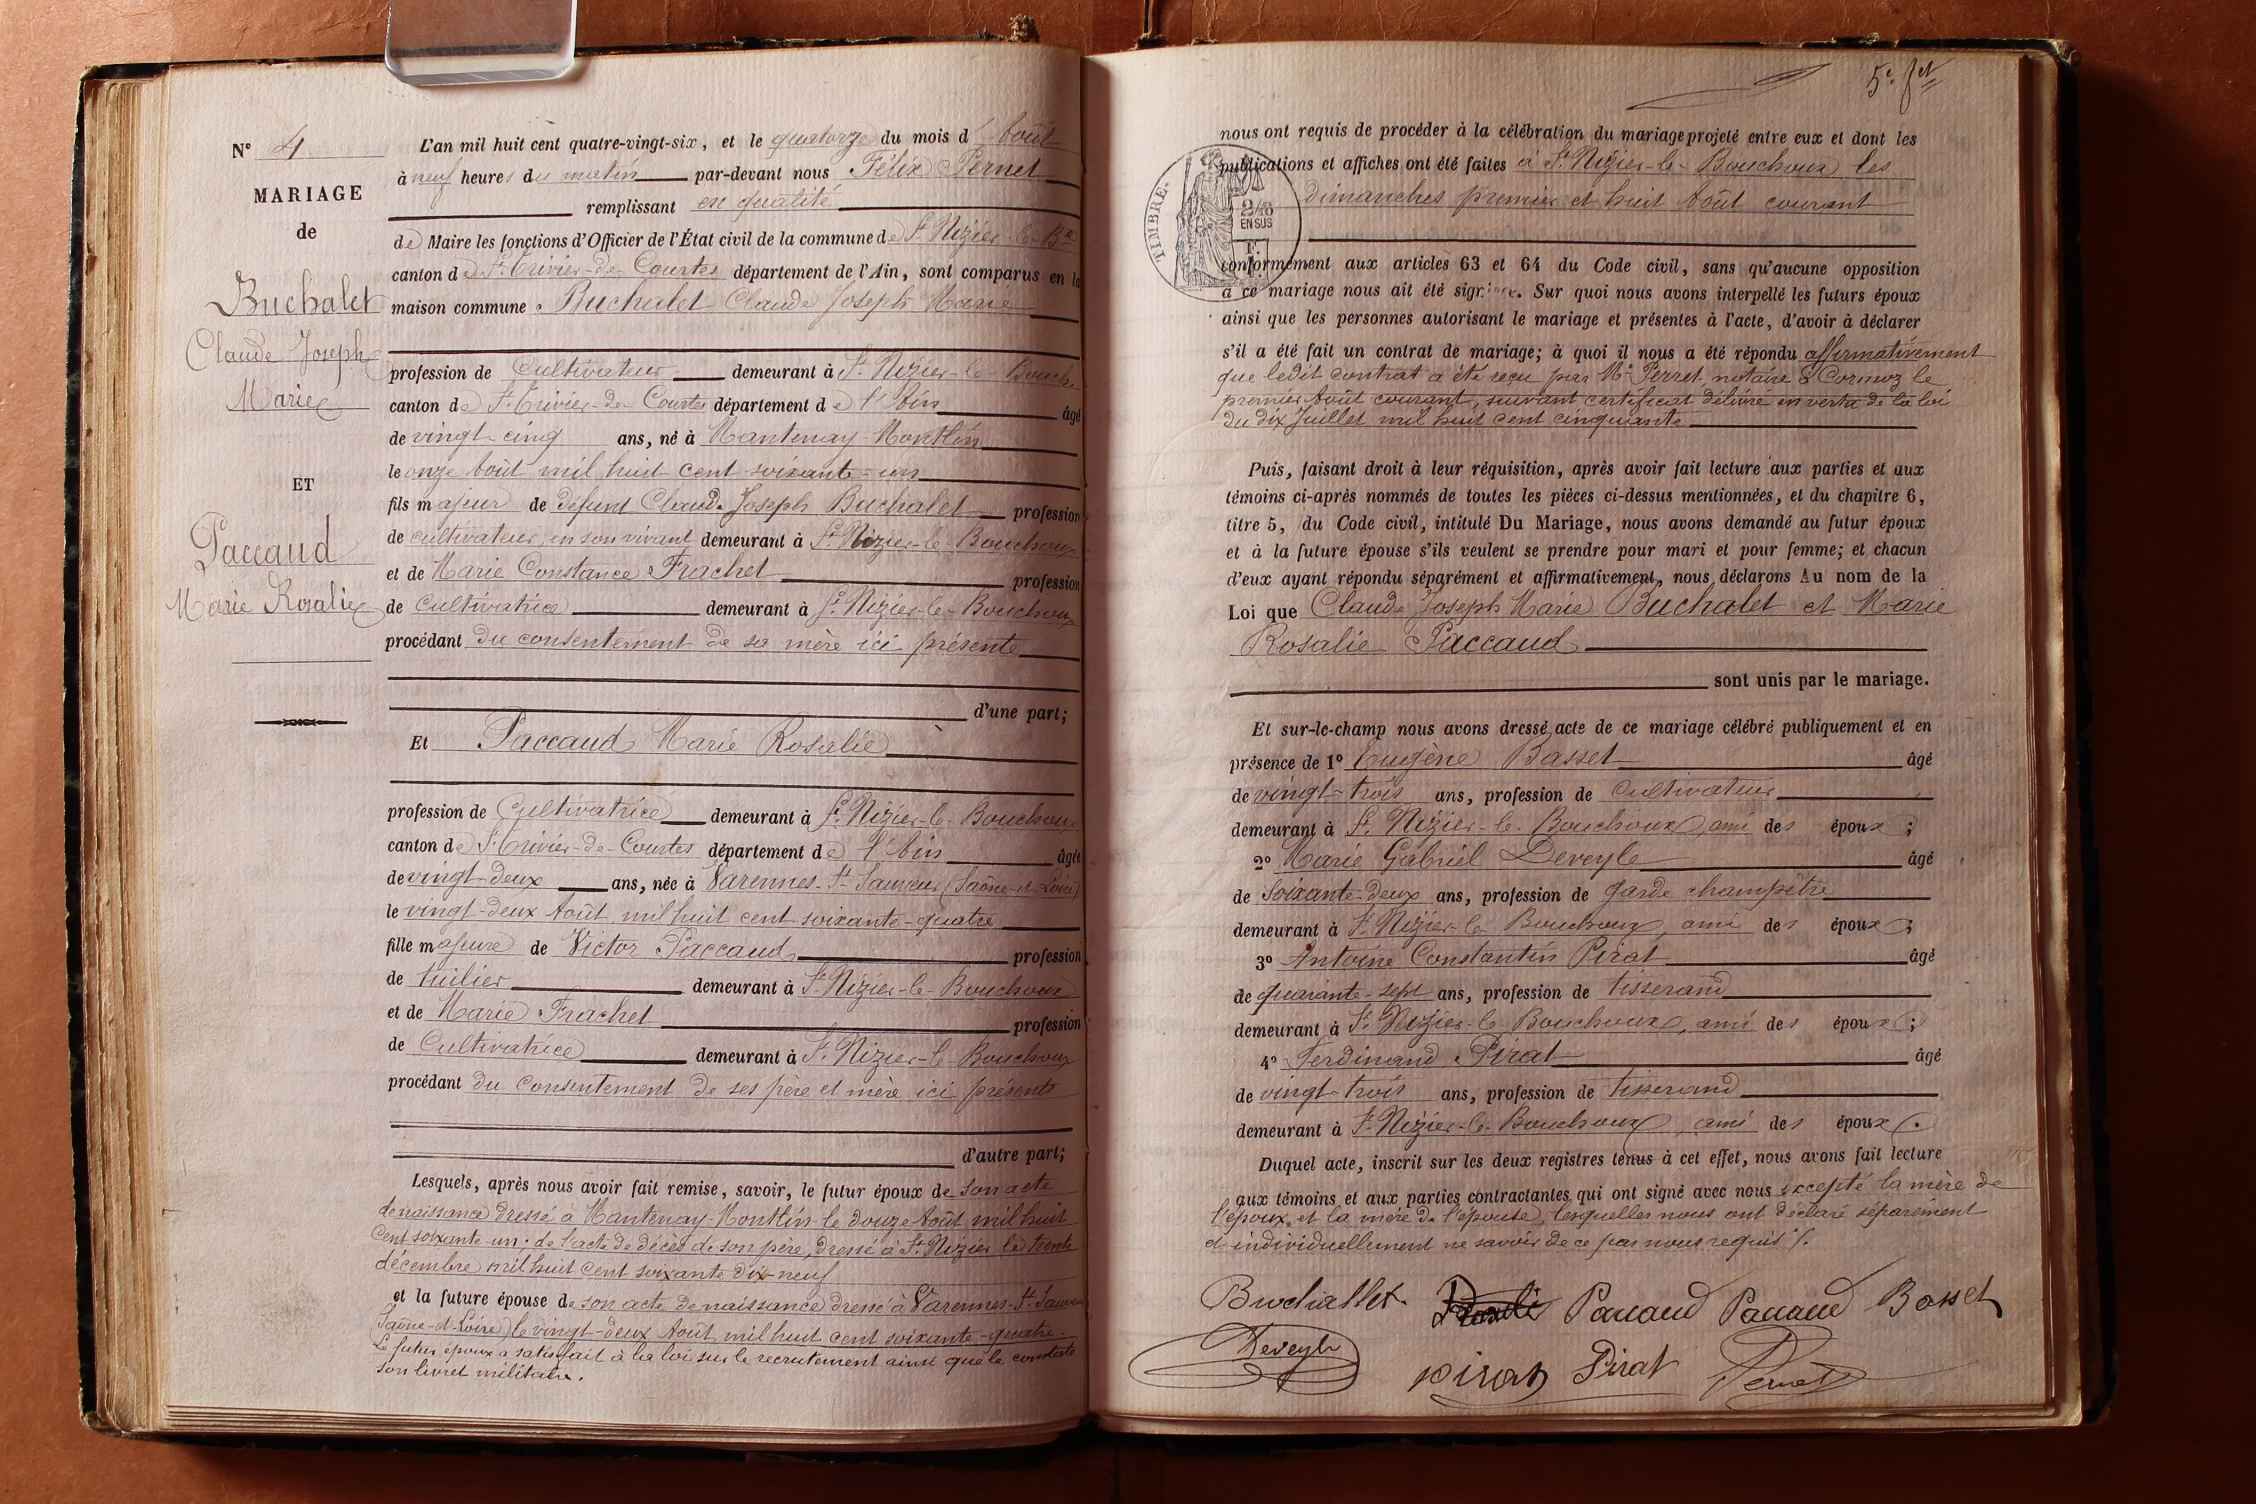 N° 4
MARIAGE
de
Buchalet
Claude Joseph
Marie
ET
Paccaud
Marie Rosalie
L'an mil huit cent quatre-vingt-six, et le quatorze du mois d'Août
à neuf heures du matin par-devant nous Félix Pernet
remplissant en qualité
de Maire les fonctions d'Officier de l'État civil de la commune de St Nizier-le-Bx
canton de St Trivier-de-Courtes département de l'Ain, sont comparus en la
maison commune. Buchalet Claude Joseph Marie
profession de Cultivateur demeurant à St Nizier-le-Bouchx
canton de St Trivier-de-Courtes département de l'Ain âgé
de vingt-cinq ans, né à Mantenay-Montlin
le onze Août mil huit cent soixante-un
fils majeur de défunt Claude Joseph Buchalet profession
de cultivateur, en son vivant demeurant à St Nizier-le-Bouchoux
et de Marie Constance Frachet profession
de Cultivatrice demeurant à St Nizier-le-Bouchoux
procédant du consentement de sa mère ici présente
d'une part;
Et Paccaud Marie Rosalie
profession de Cultivatrice demeurant à St Nizier-le-Bouchoux
canton de St Trivier-de-Courtes département de l'Ain âgée
de vingt-deux ans, née à Varennes-St-Sauveur (Saône-et-Loire)
le vingt-deux Août mil huit cent soixante-quatre
fille majeure de Victor Paccaud profession
de tuilier demeurant à St Nizier-le-Bouchoux
et de Marie Frachet profession
de Cultivatrice demeurant à St Nizier-le-Bouchoux
procédant du consentement de ses père et mère ici présents
d'autre part;
Lesquels, après nous avoir fait remise, savoir, le futur époux de son acte
de naissance dressé à Mantenay-Montlin le douze Août mil huit
cent soixante-un: de l'acte de décès de son père, dressé à St Nizier le trente
décembre mil huit cent soixante dix-neuf
et la future épouse de son acte de naissance dressé à Varennes-St-Sauveur
Saône-et-Loire) le vingt-deux Août mil huit cent soixante-quatre-
Le futur époux a satisfait à la loi sur le recrutement ainsi que le constate
son livret militaire.
5e fet
TIMBRE.
2/10
EN SUS
nous ont requis de procéder à la célébration du mariage projeté entre eux et dont les
publications et affiches ont été faites à St Nizier-le-Bouchoux les
dimanches premier et huit Août courant
conformément aux articles 63 et 64 du Code civil, sans qu'aucune opposition
à ce mariage nous ait été signifiée. Sur quoi nous avons interpellé les futurs époux
ainsi que les personnes autorisant le mariage et présentes à l'acte, d'avoir à déclarer
s'il a été fait un contrat de mariage; à quoi il nous a été répondu affirmativement
que ledit contrat a été reçu par Me Perret, notaire à Cormoz le
premier Août courant, suivant certificat délivré en vertu de la loi
du dix Juillet mil huit cent cinquante
Puis, faisant droit à leur réquisition, après avoir fait lecture aux parties et aux
témoins ci-après nommés de toutes les pièces ci-dessus mentionnées, et du chapitre 6,
titre 5, du Code civil, intitulé Du Mariage, nous avons demandé au futur époux
et à la future épouse s'ils veulent se prendre pour mari et pour femme; et chacun
d'eux ayant répondu séparément et affirmativement, nous déclarons Au nom de la
Loi que Claude Joseph Marie Buchalet et Marie
Rosalie Paccaud
sont unis par le mariage.
Et sur-le-champ nous avons dressé acte de ce mariage célébré publiquement et en
présence de 1° Eugène Basset âgé
de vingt-trois ans, profession de Cultivateur
demeurant à St Nizier-le-Bouchoux, ami des époux;
2° Marie Gabriel Deveyle âgé
de soixante-deux ans, profession de garde champêtre
demeurant à St Nizier-le-Bouchoux, ami des époux;
3° Antoine Constantin Pirat âgé
de quarante-sept ans, profession de tisserand
demeurant à St Nizier-le-Bouchoux, ami des époux;
4° Ferdinand Pirat âgé
de vingt-trois ans, profession de tisserand
demeurant à St Nizier-le-Bouchoux, ami des époux.
Duquel acte, inscrit sur les deux registres tenus à cet effet, nous avons fait lecture
aux témoins et aux parties contractantes qui ont signé avec nous excepté la mère de
l'époux et la mère de l'épouse, lesquelles nous ont déclaré séparément
et individuellement ne savoir de ce par nous requis /.
Buchallet Paccaud Paccaud Basset
Deveyle Pirat Pirat Pernet